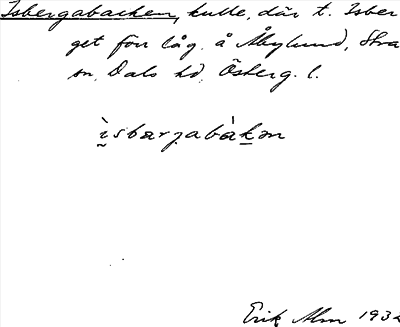 Isbergabacken, kulle, där t. Isber
get förr låg. å Åbylund, Stra
sn, Dals hd, Österg. l.
ìsbarjabàkən
Erik Alm 1932